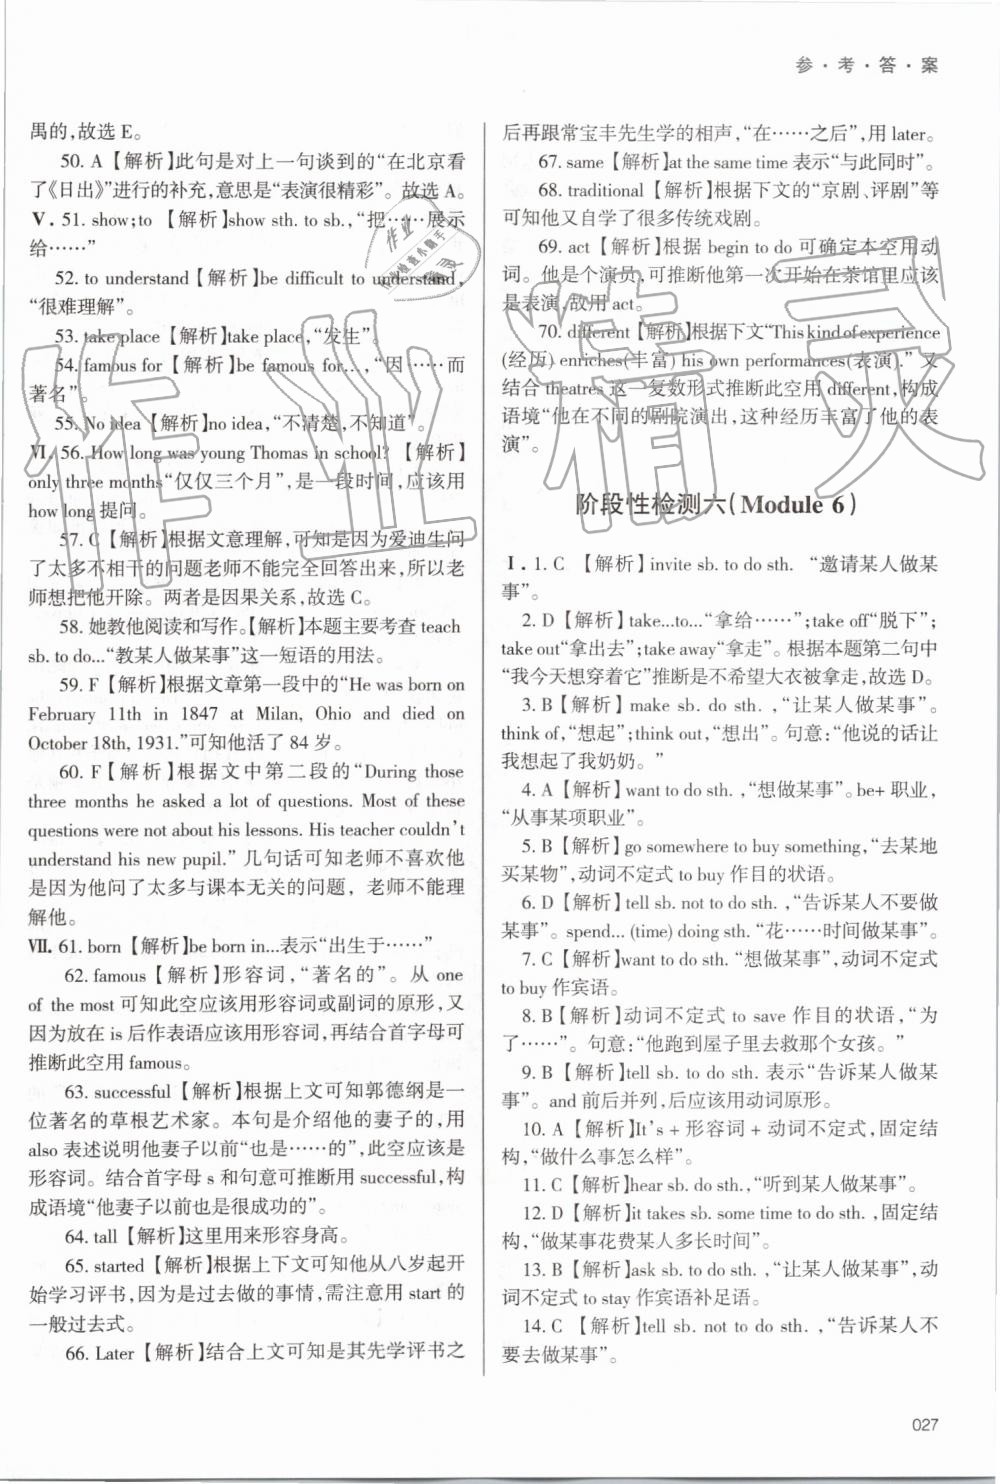 参·考·答·案
禺的,故选E。
50. A【解析】此句是对上一句谈到的“在北京看
了《日出》”进行的补充,意思是“表演很精彩”。故选A。
Ⅴ. 51. show;to 【解析】show sth. to sb.,“把……展示
给……”
52. to understand【解析】be difficult to understand,
“很难理解”。
53. take place【解析】take place,“发生”。
54. famous for【解析】be famous for...,“因……而
著名”。
55. No idea【解析】no idea,“不清楚,不知道”。
Ⅵ. 56. How long was young Thomas in school? 【解析】
only three months“仅仅三个月”,是一段时间,应该用
how long提问。
57. C【解析】根据文意理解,可知是因为爱迪生问
了太多不相干的问题老师不能完全回答出来,所以老
师想把他开除。两者是因果关系,故选C。
58. 她教他阅读和写作。【解析】本题主要考查teach
sb. to do...“教某人做某事”这一短语的用法。
59. F【解析】根据文章第一段中的“He was born on
February 11th in 1847 at Milan, Ohio and died on
October 18th, 1931.”可知他活了84岁。
60. F【解析】根据文中第二段的“During those
three months he asked a lot of questions. Most of these
questions were not about his lessons. His teacher couldn't
understand his new pupil.”几句话可知老师不喜欢他
是因为他问了太多与课本无关的问题, 老师不能理
解他。
Ⅶ. 61. born【解析】be born in...表示“出生于……”
62. famous【解析】形容词,“著名的”。从 one
of the most 可知此空应该用形容词或副词的原形,又
因为放在is后作表语应该用形容词,再结合首字母可
推断此空用famous.
63. successful【解析】根据上文可知郭德纲是一
位著名的草根艺术家。本句是介绍他的妻子的,用
also表述说明他妻子以前“也是……的”,此空应该是
形容词。结合首字母s和句意可推断用successful,构
成语境“他妻子以前也是很成功的”。
64. tall【解析】这里用来形容身高。
65. started【解析】根据上下文可知他从八岁起开
始学习评书,因为是过去做的事情,需注意用start的
一般过去式。
66. Later【解析】结合上文可知是其先学评书之
后再跟常宝丰先生学的相声,“在……之后”,用later。
67. same【解析】at the same time 表示“与此同时”。
68. traditional【解析】根据下文的“京剧、评剧”等
可知他又自学了很多传统戏剧。
69. act【解析】根据 begin to do 可确定本空用动
词。他是个演员,可推断他第一次开始在茶馆里应该
是表演,故用act。
70. different【解析】根据下文“This kind of experience
(经历) enriches(丰富) his own performances(表演).”又
结合theatres这一复数形式推断此空用different,构成
语境“他在不同的剧院演出,这种经历丰富了他的表
演”。
阶段性检测六(Module 6)
Ⅰ. 1. C 【解析】invite sb. to do sth. “邀请某人做某
事”。
2. D【解析】take...to...“拿给……”;take off“脱下”;
take out“拿出去”;take away“拿走”。根据本题第二句中
“我今天想穿着它”推断是不希望大衣被拿走,故选D。
3. B【解析】make sb. do sth. ,“让某人做某事”。
think of,“想起”;think out,“想出”。句意:“他说的话让
我想起了我奶奶。”
4. A【解析】want to do sth. ,“想做某事”。be+职业,
“从事某项职业”。
5. B【解析】go somewhere to buy something,“去某地
买某物”,动词不定式to buy作目的状语。
6. D【解析】tell sb. not to do sth. ,“告诉某人不要做
某事”。spend... (time) doing sth. “花……时间做某事”。
7. C【解析】want to do sth. “想做某事”,动词不定式
to buy作宾语。
8. B【解析】动词不定式 to save 作目的状语,“为
了……”。句意:“他跑到屋子里去救那个女孩。”
9. B【解析】tell sb. to do sth. 表示“告诉某人做某
事”。and前后并列,后应该用动词原形。
10. A【解析】It's + 形容词 + 动词不定式,固定结
构,“做什么事怎么样”。
11. C【解析】hear sb. do sth.,“听到某人做某事”。
12. D【解析】it takes sb. some time to do sth. ,固定结
构,“做某事花费某人多长时间”。
13. B【解析】ask sb. to do sth. ,“让某人做某事”,动
词不定式to stay作宾语补足语。
14. C【解析】tell sb. not to do sth. ,“告诉某人不
要去做某事”。
027
作业精灵